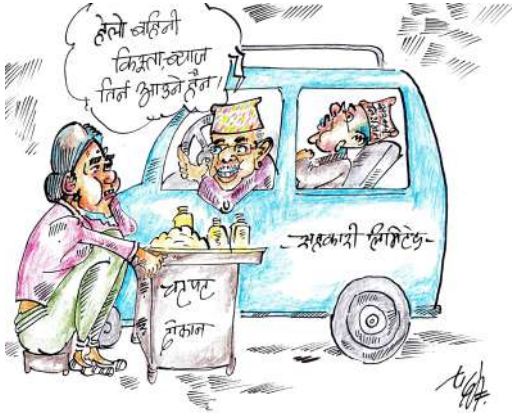 हेलो बहिनी
किस्ता, ब्याज
तिर्न आउने हैन!
-सहकारी लिमिटेड-
चटपट
दोकान